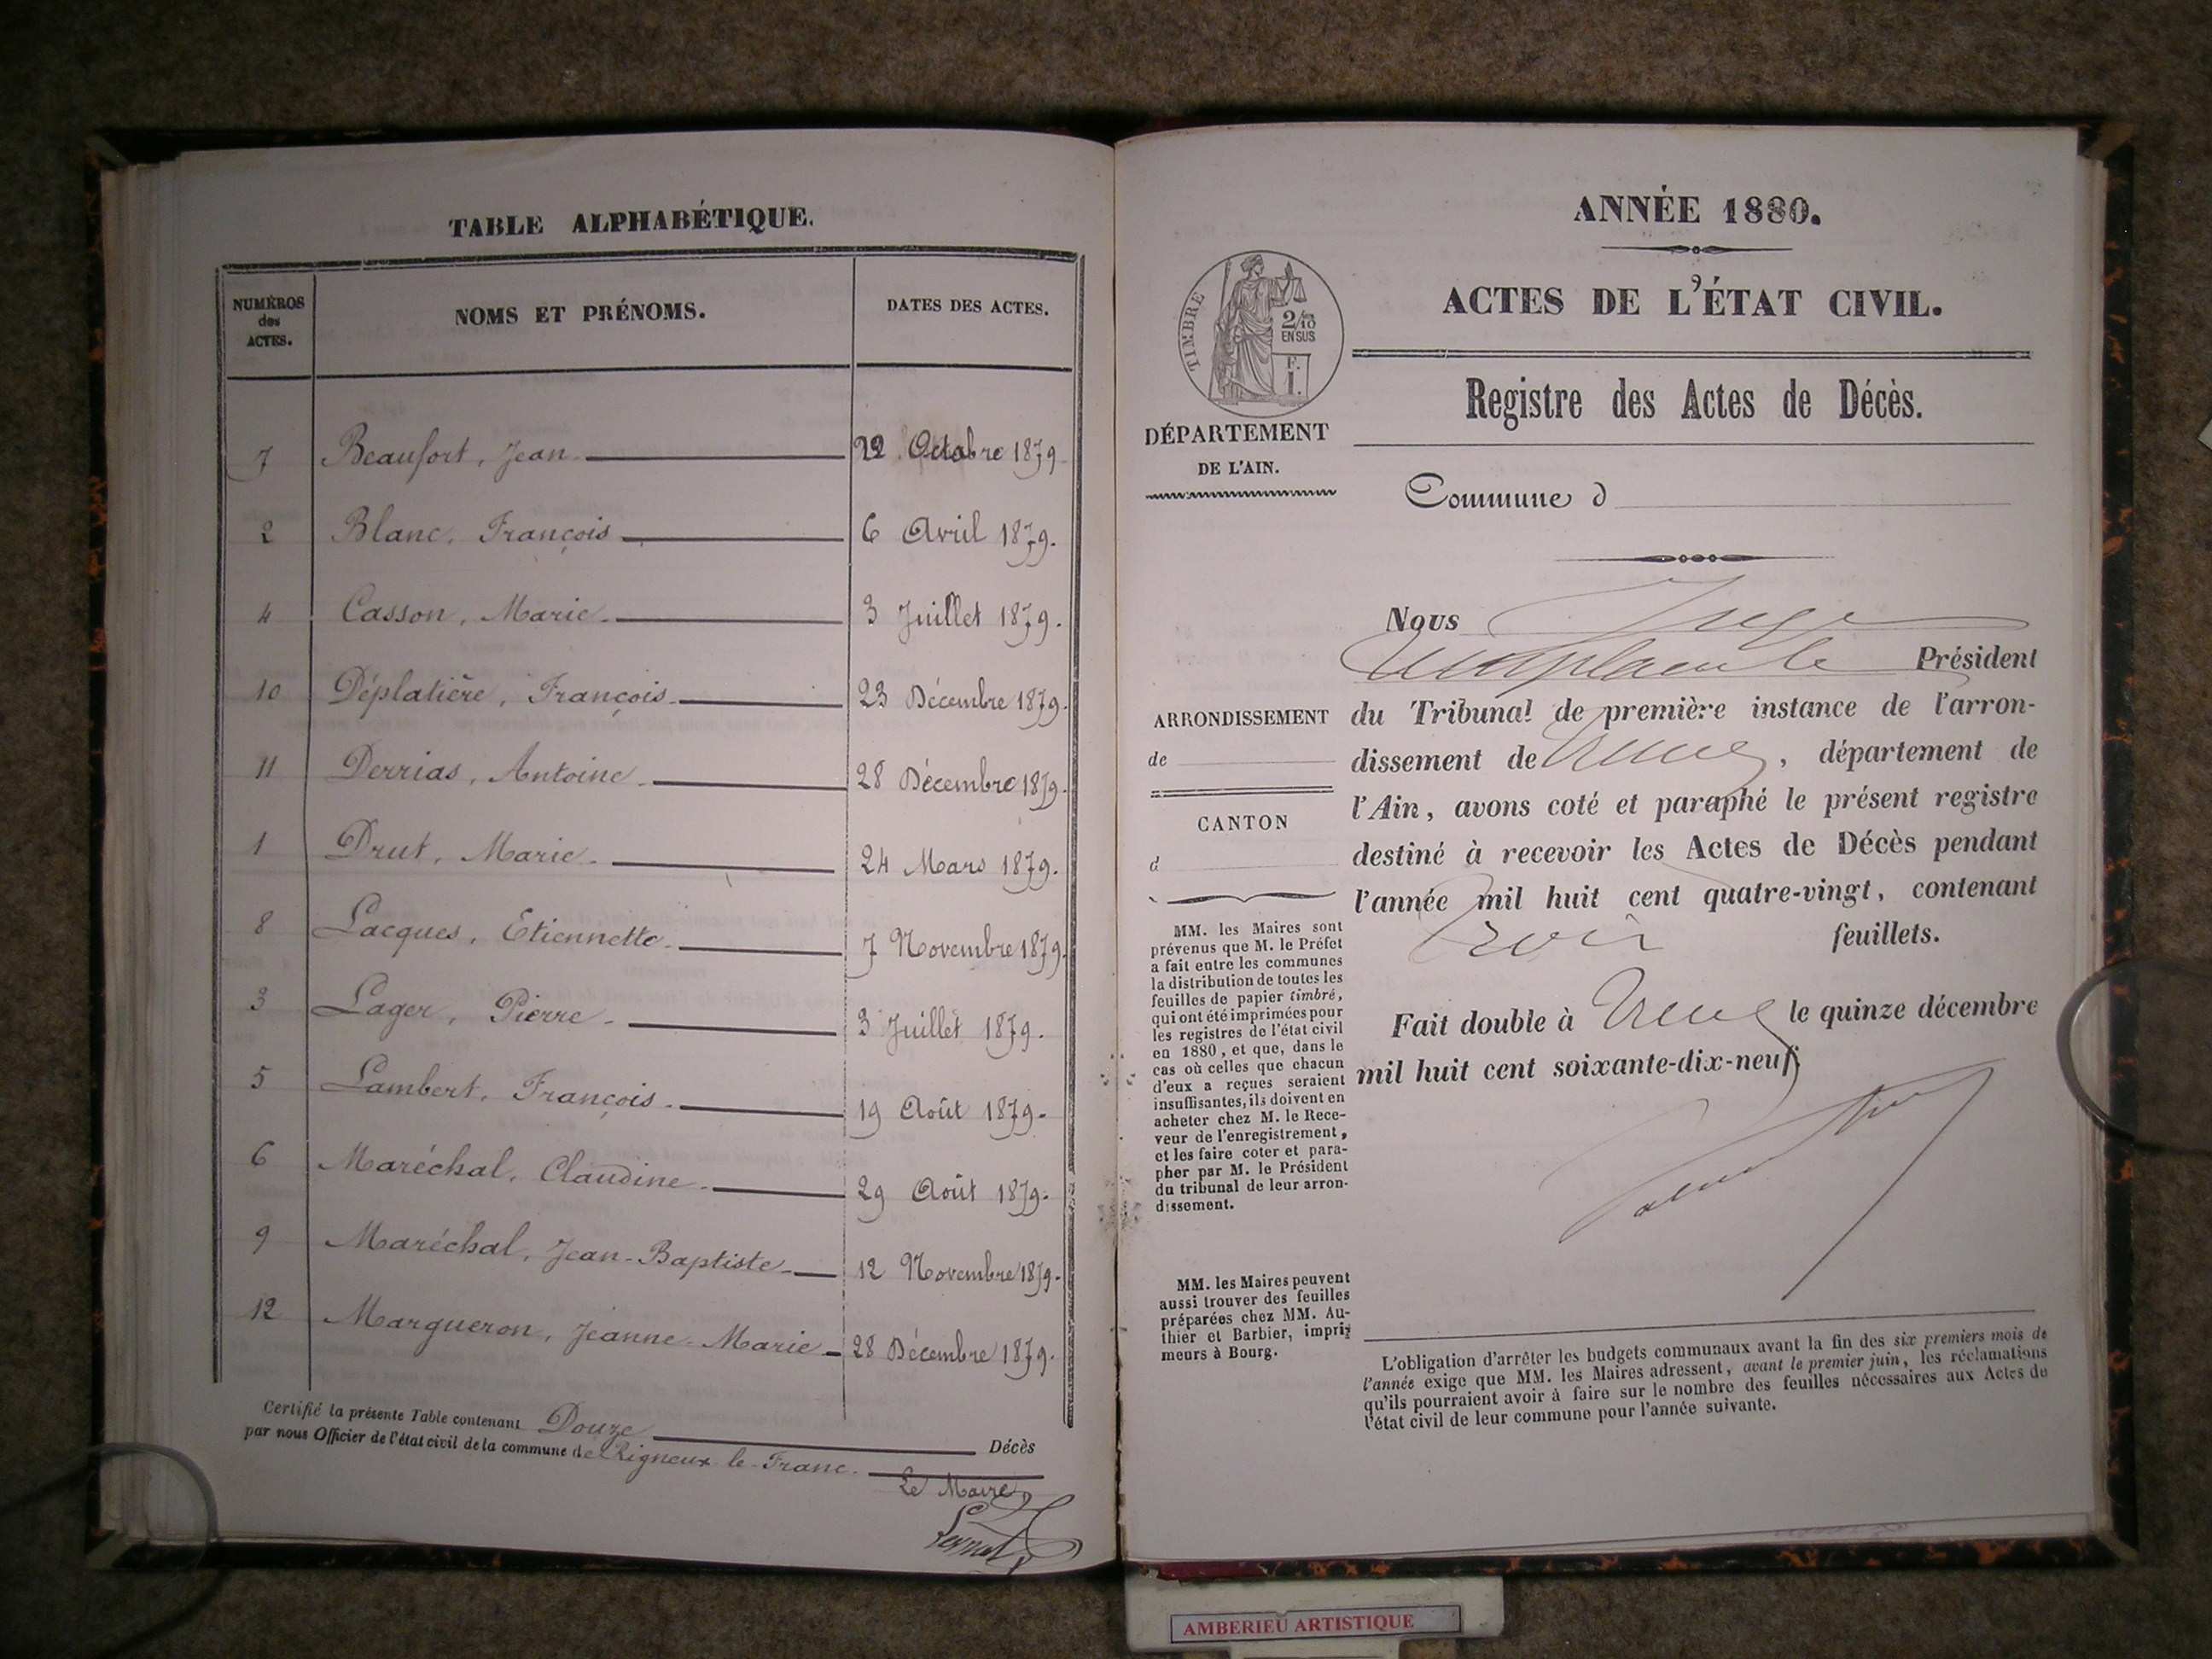 TABLE ALPHABÉTIQUE.
NUMÉROS
des
ACTES.
NOMS ET PRÉNOMS.
DATES DES ACTES.
7 Beaufort, Jean 22 Octobre 1879
2 Blanc, François 6 Avril 1879.
4 Casson, Marie 3 Juillet 1879.
10 Déplatière, François 23 Décembre 1879.
11 Derrias, Antoine 28 Décembre 1879.
1 Drut, Marie 24 Mars 1879.
8 Lacques, Etiennette 7 Novembre 1879
3 Lager, Pierre 3 Juillet 1879.
5 Lambert, François 19 Août 1879.
6 Maréchal, Claudine 29 Août 1879.
9 Maréchal, Jean-Baptiste 12 Novembre 1879.
12 Margueron, Jeanne-Marie 28 Décembre 1879.
Certifié la présente Table contenant Douze Décès
par nous Officier de l'état civil de la commune de Rigneux-le-Franc.
Le Maire,
ANNÉE 1880.
TIMBRE
2/10
EN SUS
F.
1.
ACTES DE L'ÉTAT CIVIL.
Registre des Actes de Décès.
DÉPARTEMENT
DE L'AIN.
Commune d
ARRONDISSEMENT
de
CANTON
d
MM. les Maires sont
prévenus que M. le Préfet
a fait entre les communes
la distribution de toutes les
feuilles de papier timbré,
qui ont été imprimées pour
les registres de l'état civil
en 1880, et que, dans le
cas où celles que chacun
d'eux a reçues seraient
insuffisantes, ils doivent en
acheter chez M. le Rece-
veur de l'enregistrement,
et les faire coter et para-
pher par M. le Président
du tribunal de leur arron-
dissement.
MM. les Maires peuvent
aussi trouver des feuilles
préparées chez MM. Au-
thier et Barbier, impri-
meurs à Bourg.
Nous Juge
Président
du Tribunal de première instance de l'arron-
dissement de , département de
l'Ain, avons coté et paraphé le présent registre
destiné à recevoir les Actes de Décès pendant
l'année mil huit cent quatre-vingt, contenant
Trois feuillets.
Fait double à le quinze décembre
mil huit cent soixante-dix-neuf.
L'obligation d'arrêter les budgets communaux avant la fin des six premiers mois de
l'année exige que MM. les Maires adressent, avant le premier juin, les réclamations
qu'ils pourraient avoir à faire sur le nombre des feuilles nécessaires aux Actes de
l'état civil de leur commune pour l'année suivante.
AMBERIEU ARTISTIQUE